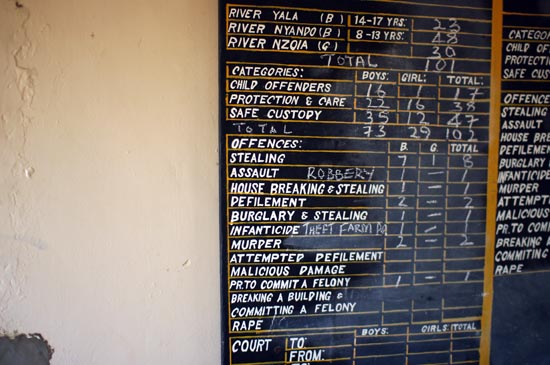 RIVER YALA (B) 14-17 YRS. 23
RIVER NYANDO (B) 8-13 YRS. 48
RIVER NZOIA (G) 30
TOTAL 101
CATEGORIES: BOYS: GIRL: TOTAL:
CHILD OFFENDERS 16 1 17
PROTECTION & CARE 22 16 38
SAFE CUSTODY 35 12 47
TOTAL 73 29 102
OFFENCES: B. G. TOTAL
STEALING 7 1 8
ASSAULT ROBBERY 1 - 1
HOUSE BREAKING & STEALING 1 - 1
DEFILEMENT 2 - 2
BURGLARY & STEALING 1 - 1
INFANTICIDE THEFT FARM 1 - 1
MURDER 2 - 2
ATTEMPTED DEFILEMENT
MALICIOUS DAMAGE
PR.TO COMMIT A FELONY 1 - 1
BREAKING A BUILDING &
COMMITTING A FELONY
RAPE
BOYS: GIRLS: TOTAL
COURT TO:
FROM:
CATEGO
CHILD OF
PROTECTION
SAFE CUST
OFFENCES
STEALING
ASSAULT
HOUSE BREA
DEFILEMEN
BURGLARY
INFANTICID
MURDER
ATTEMPTE
MALICIOUS
PR.TO COM
BREAKING A
COMMITING
RAPE